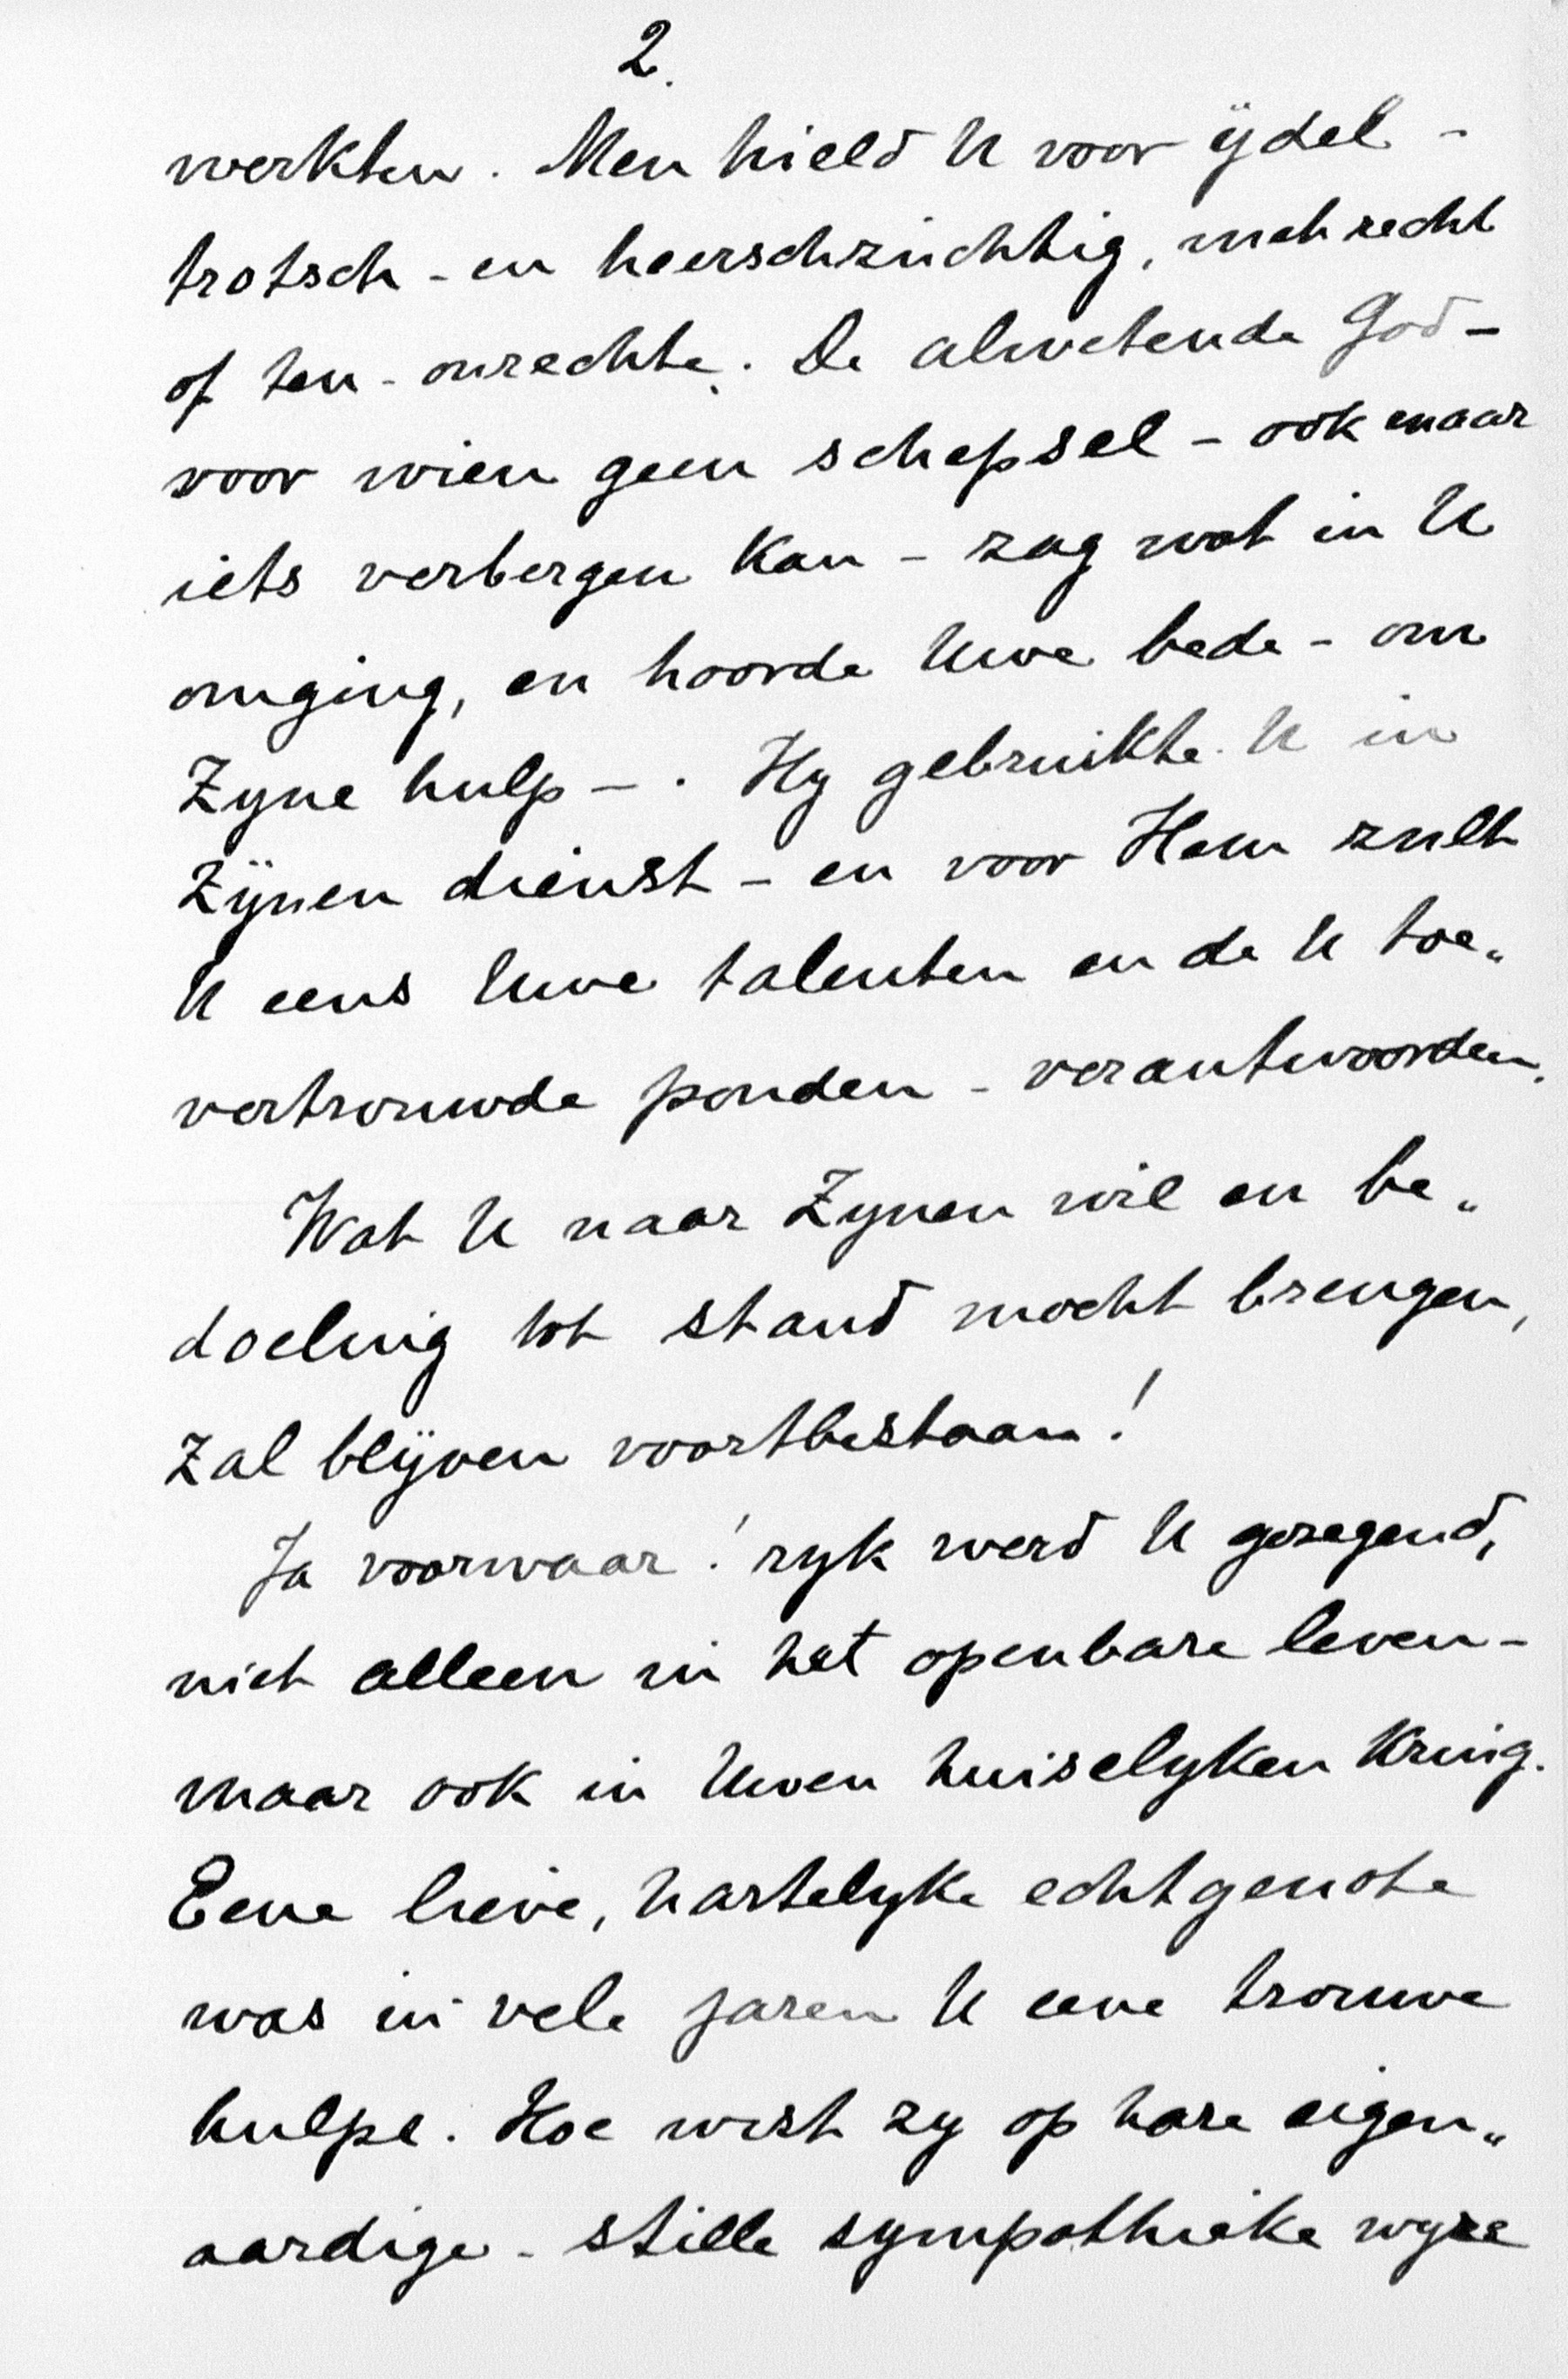 2.
werkten. Men hield U voor ijdel -
trotsch - en heerschzuchtig, met recht
of ten - onrechte. De alwetende God -
voor wien geen schepsel - ook maar
iets verbergen kan - zag wat in U
omging, en hoorde Uwe bede - om
Zyne hulp - . Hy gebruikte U in
Zijnen dienst - en voor Hem zult
U eens Uwe talenten en de U toe„
vertrouwde ponden - verantwoorden.
Wat U naar Zynen wil en be„
doeling tot stand mocht brengen,
zal blijven voortbestaan!
Ja voorwaar! ryk werd U gezegend,
niet alleen in het openbare leven -
maar ook in Uwen huiselyken kring.
Eene lieve, hartelyke echtgenote
was in vele jaren U eene trouwe
hulpe. Hoe wist zy op hare eigen„
aardige - stille sympathieke wyze